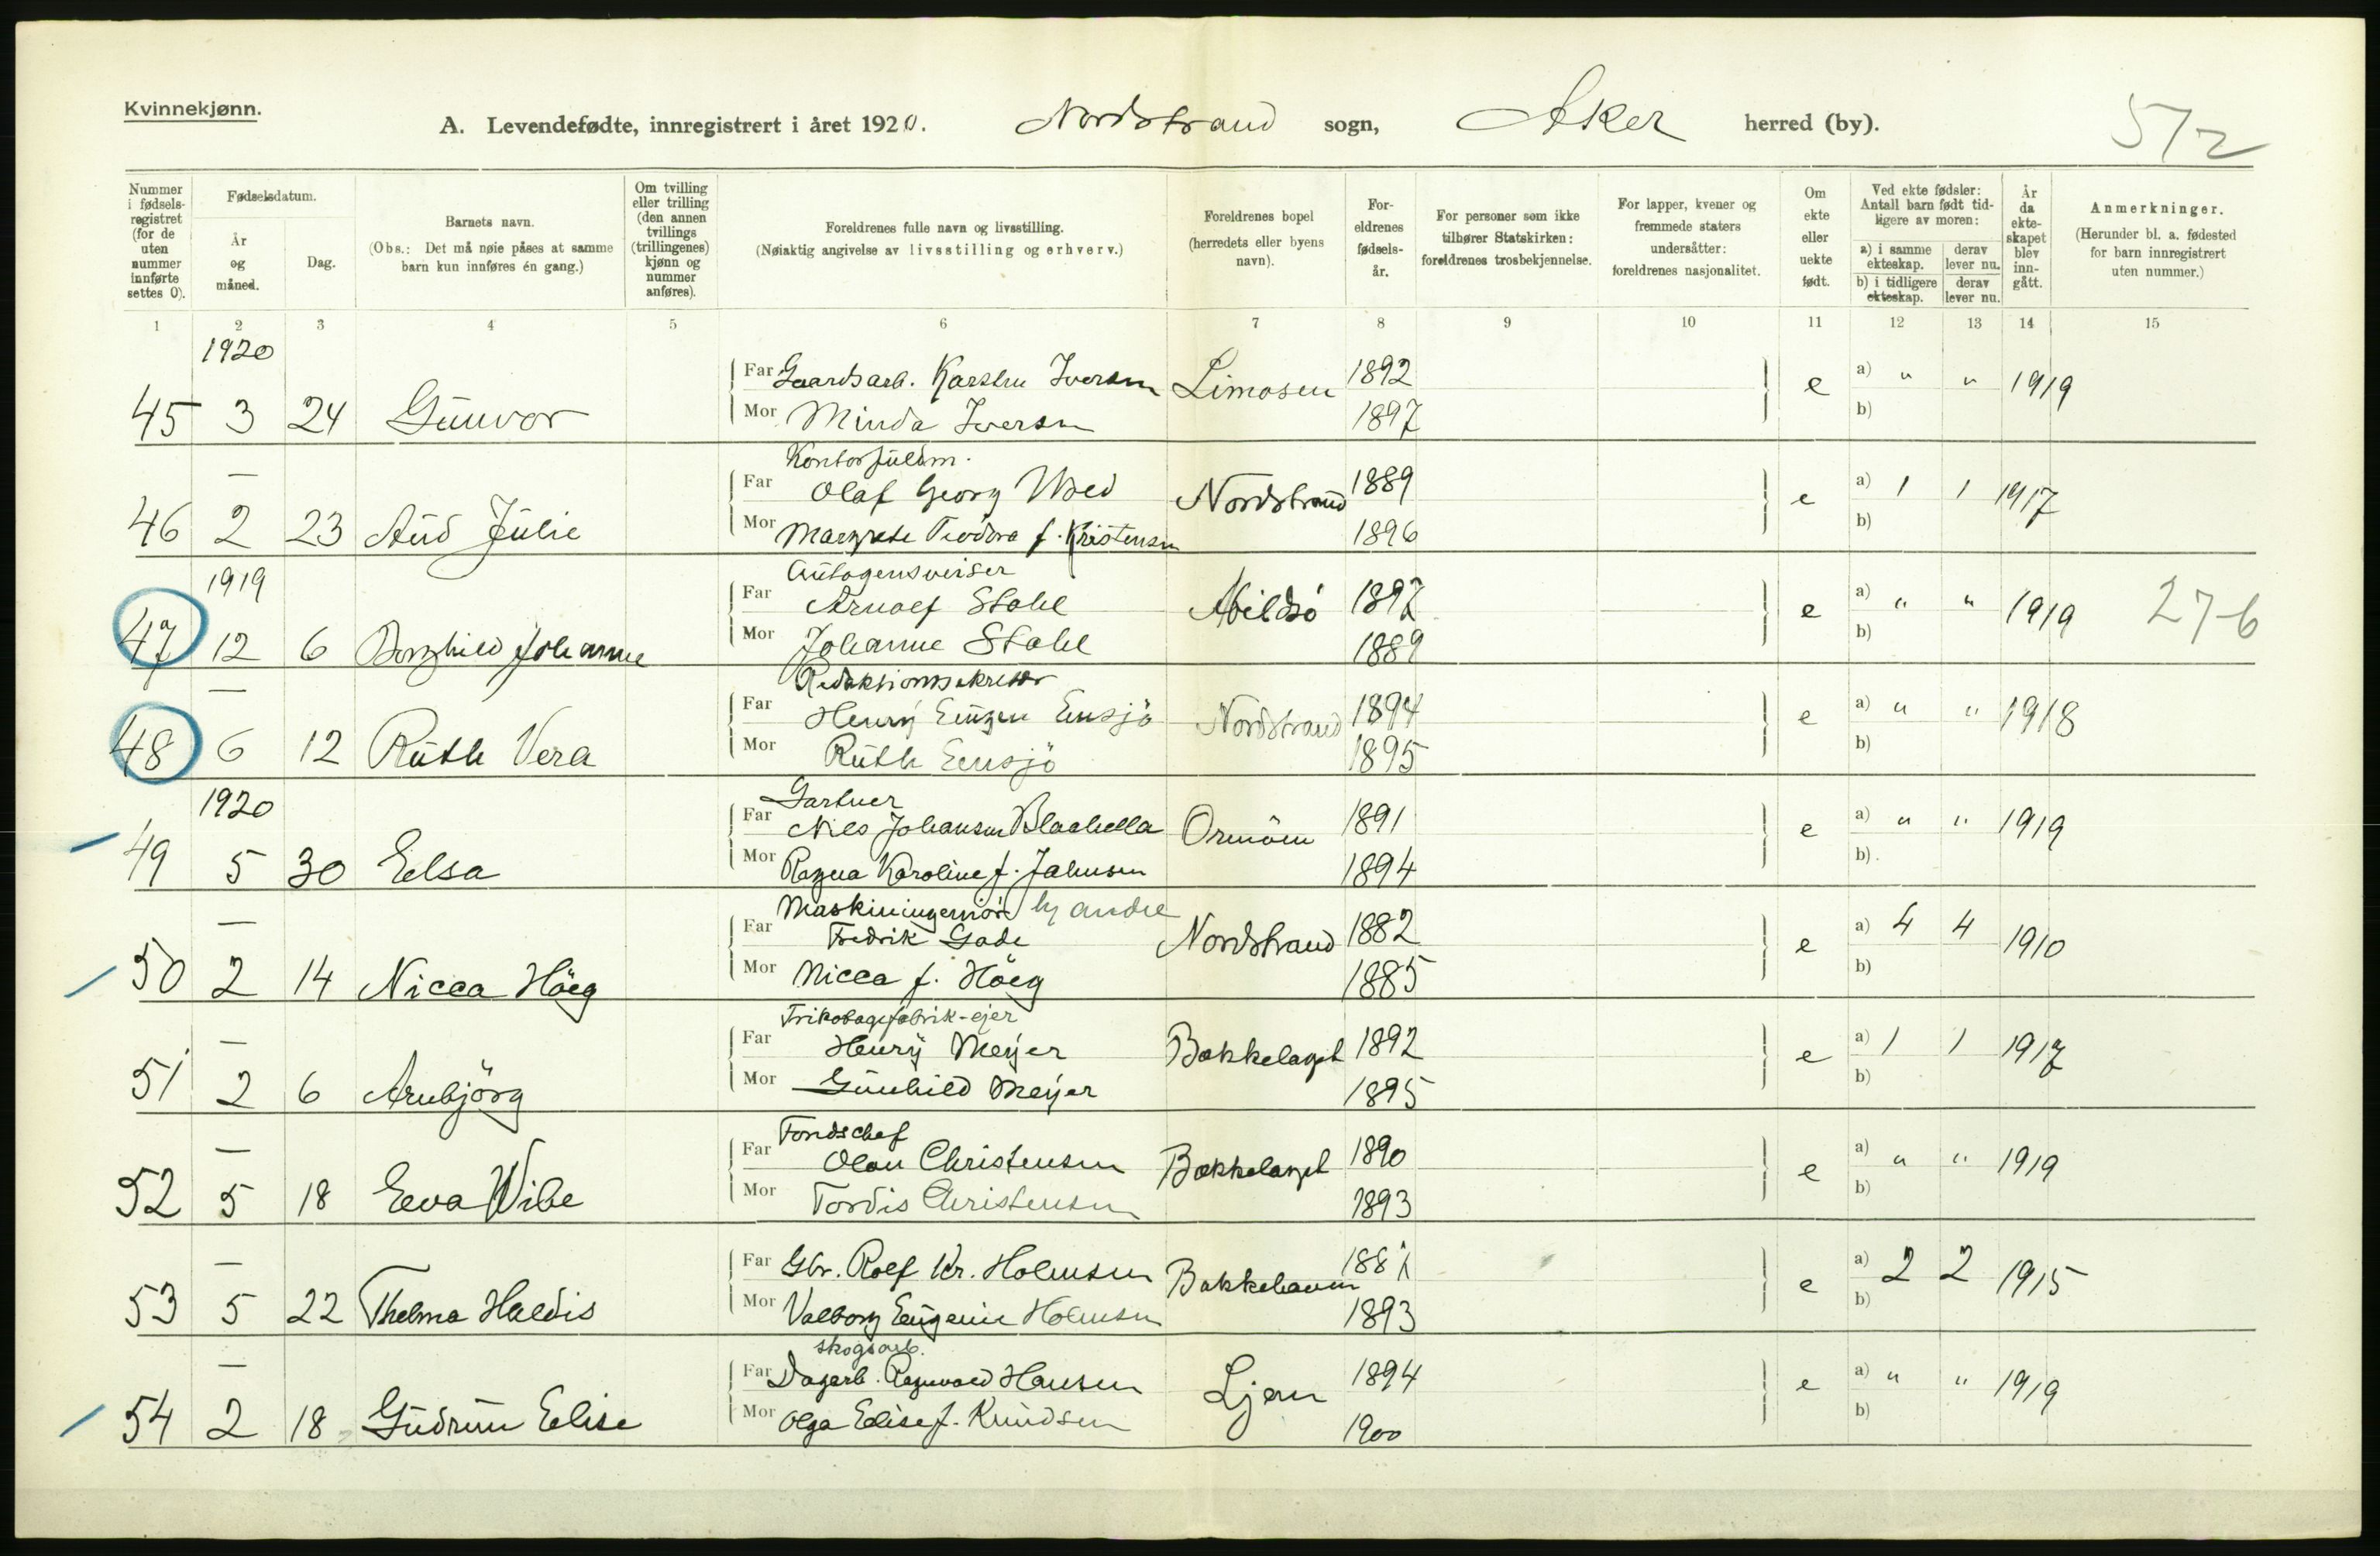 Kvinnekjønn.
A. Levendefødte, innregistrert i året 1920. Nordstrand sogn, Aker herred (by).
572
Nummer i fødsels-registret (for de uten nummer innførte settes 0).
Fødselsdatum.
År og måned.
Dag.
Barnets navn.
(Obs.: Det må nøie påses at samme barn kun innføres én gang.)
Om tvilling eller trilling (den annen tvillings (trillingenes) kjønn og nummer anføres).
Foreldrenes fulle navn og livsstilling.
(Nøiaktig angivelse av livsstilling og erhverv.)
Foreldrenes bopel (herredets eller byens navn).
For-eldrenes fødsels-år.
For personer som ikke tilhører Statskirken: foreldrenes trosbekjennelse.
For lapper, kvener og fremmede staters undersåtter: foreldrenes nasjonalitet.
Om ekte eller uekte født.
Ved ekte fødsler: Antall barn født tid-ligere av moren:
a) i samme ekteskap. derav lever nu.
b) i tidligere ekteskap. derav lever nu.
År da ekte-skapet blev inn-gått.
Anmerkninger.
(Herunder bl. a. fødested for barn innregistrert uten nummer.)
1 2 3 4 5 6 7 8 9 10 11 12 13 14 15
1920
Far Gaardsarb. Karsten Iversen Limosen 1892 e a) " " 1919
45 3 24 Gunvor Mor Minda Iversen 1897 b)
— Kontorfuldm.
Far Olaf Georg Nordstrand 1889 e a) 1 1 1917
46 2 23 Aud Julie Mor Margrete Teodora f. Kristensen 1896 b)
1919 Autogensveiser
Far Arnolf Stahl Abildsö 1897 e a) " " 1919 276
47 12 6 Borghild Johanne Mor Johanne Stahl 1889 b)
— Redaktionssekretær
Far Henry Eugen Ensjö Nordstrand 1894 e a) " " 1918
48 6 12 Ruth Vera Mor Ruth Ensjö 1895 b)
1920 Gartner
Far Nils Johansen Blachella Ormöen 1891 e a) " " 1919
49 5 30 Elsa Mor Ragna Karoline f. Jahnsen 1894 b)
— Maskiningeniör hj andre
Far Fredrik Gade Nordstrand 1882 e a) 4 4 1910
50 2 14 Nicca Höeg Mor Nicca f. Höeg 1885 b)
— Trikotagefabrik-ejer
Far Henry Meyer Bækkelaget 1892 e a) 1 1 1917
51 2 6 Arnbjörg Mor Gunhild Meyer 1895 b)
— Fondschef
Far Olav Christensen Bækkelaget 1890 e a) " " 1919
52 5 18 Eva Wibe Mor Tordis Christensen 1893 b)
— Far Gbr. Rolf Kr. Holmsen Bækkehaven 1881 e a) 2 2 1915
53 5 22 Thelma Haldis Mor Valborg Eugenie Holmsen 1893 b)
— skogsarb.
Far Dagarb. Ragnvald Hansen Ljan 1894 e a) " " 1919
54 2 18 Gudrun Elise Mor Olga Elise f. Knudsen 1900 b)